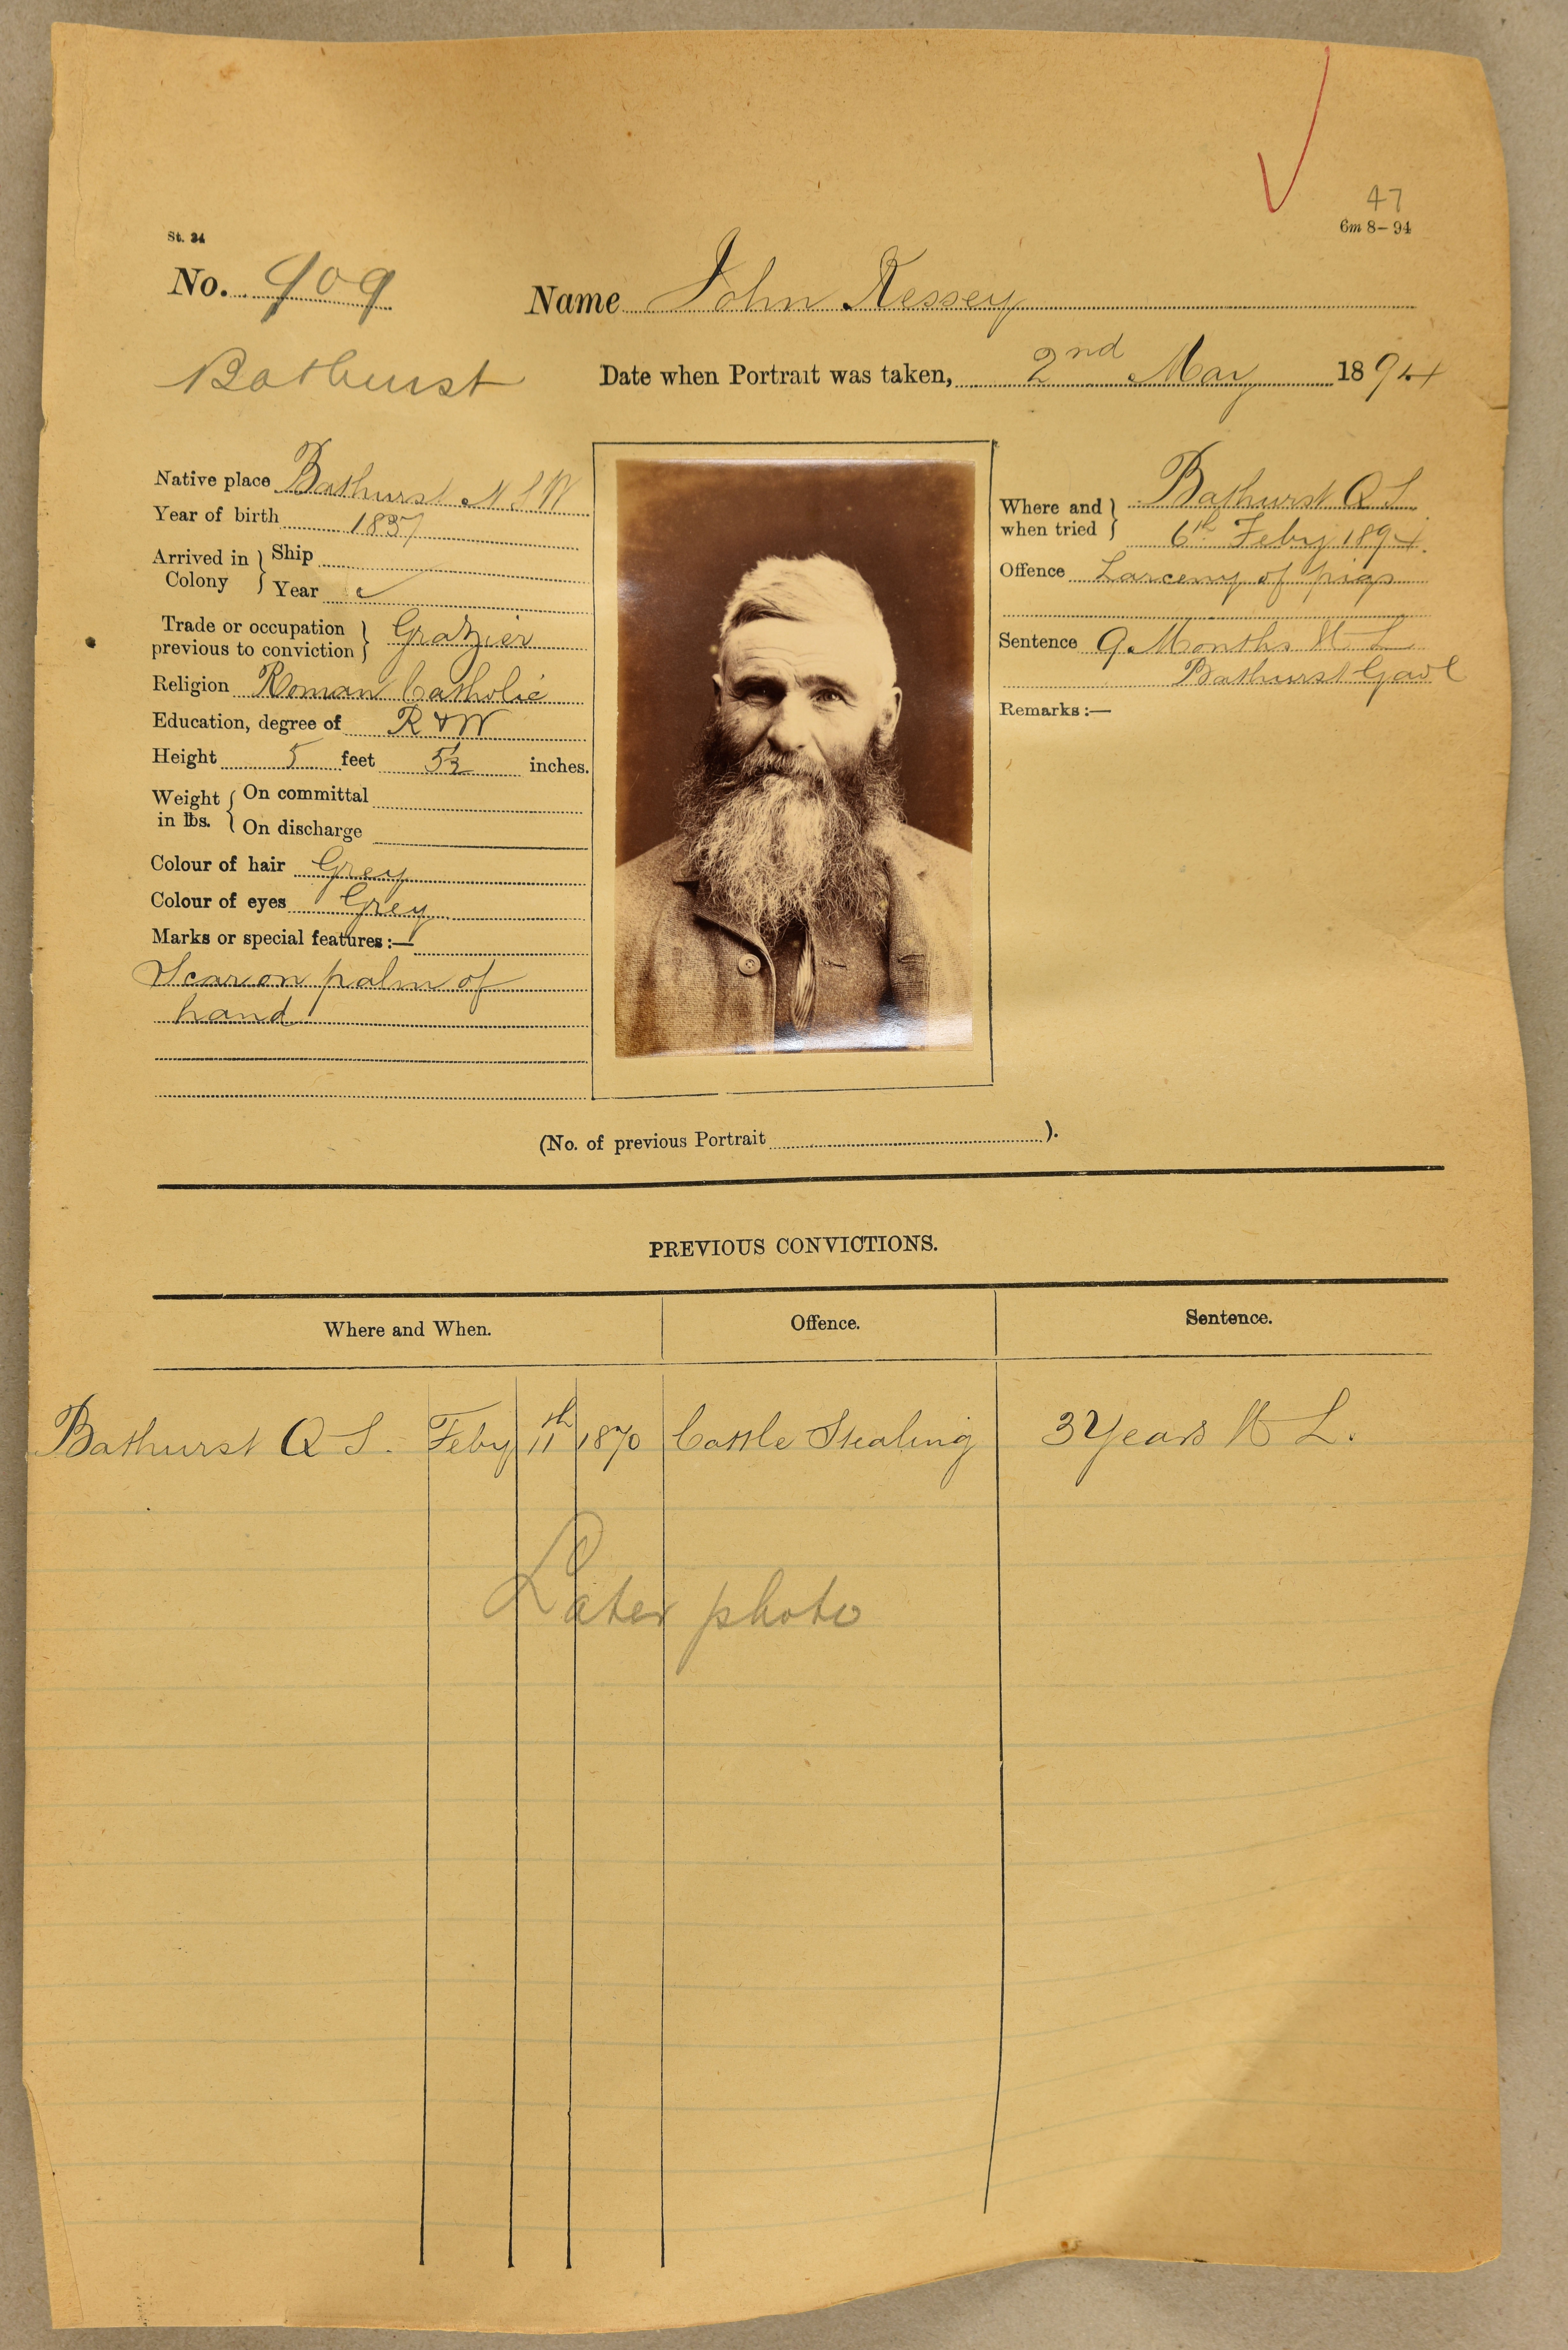 47
St. 34
6m 8–94
No. 909 Name John Kessey
Bathurst
Date when Portrait was taken, 2nd May 1894
Native place Bathurst N S W
Year of birth 1837
Arrived in Colony } Ship
Year
Trade or occupation previous to conviction } Grazier
Religion Roman Catholic
Education, degree of R & W
Height 5 feet 5½ inches.
Weight in lbs. { On committal
On discharge
Colour of hair Grey
Colour of eyes Grey
Marks or special features:—
Scar on palm of
hand
Where and when tried } Bathurst Q S
6th Feby 1894.
Offence Larceny of pigs
Sentence 9 Months H L
Bathurst Gaol
Remarks:—
(No. of previous Portrait ).
PREVIOUS CONVICTIONS.
Where and When. Offence. Sentence.
Bathurst Q S. Feby 11th 1870 Cattle Stealing 3 Years H L.
Later photo